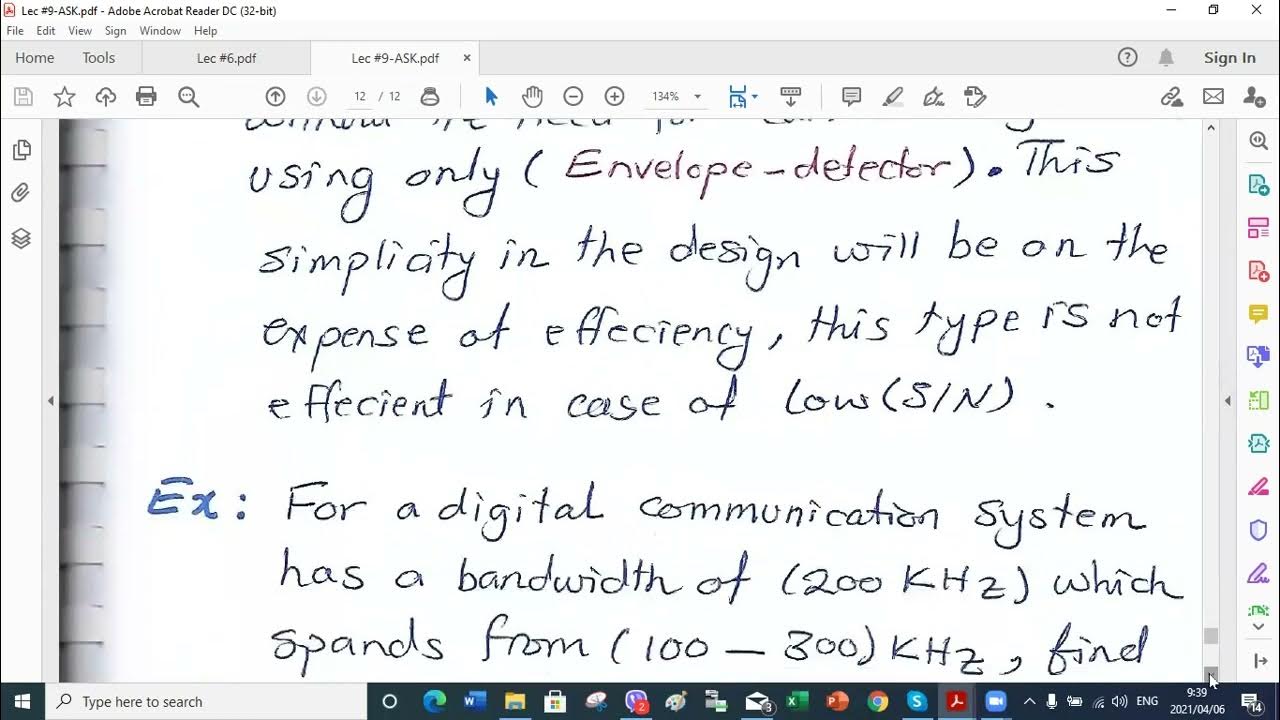 Lec #9-ASK.pdf - Adobe Acrobat Reader DC (32-bit)
File Edit View Sign Window Help
Home Tools Lec #6.pdf Lec #9-ASK.pdf × Sign In
12 / 12 134%
using only (Envelope-detector). This
simplicity in the design will be on the
expense of effeciency, this type is not
effecient in case of Low (S/N).
Ex: For a digital communication system
has a bandwidth of (200 KHz) which
spands from (100 — 300) KHz, find
Type here to search
2 3 ENG 9:39 14
2021/04/06